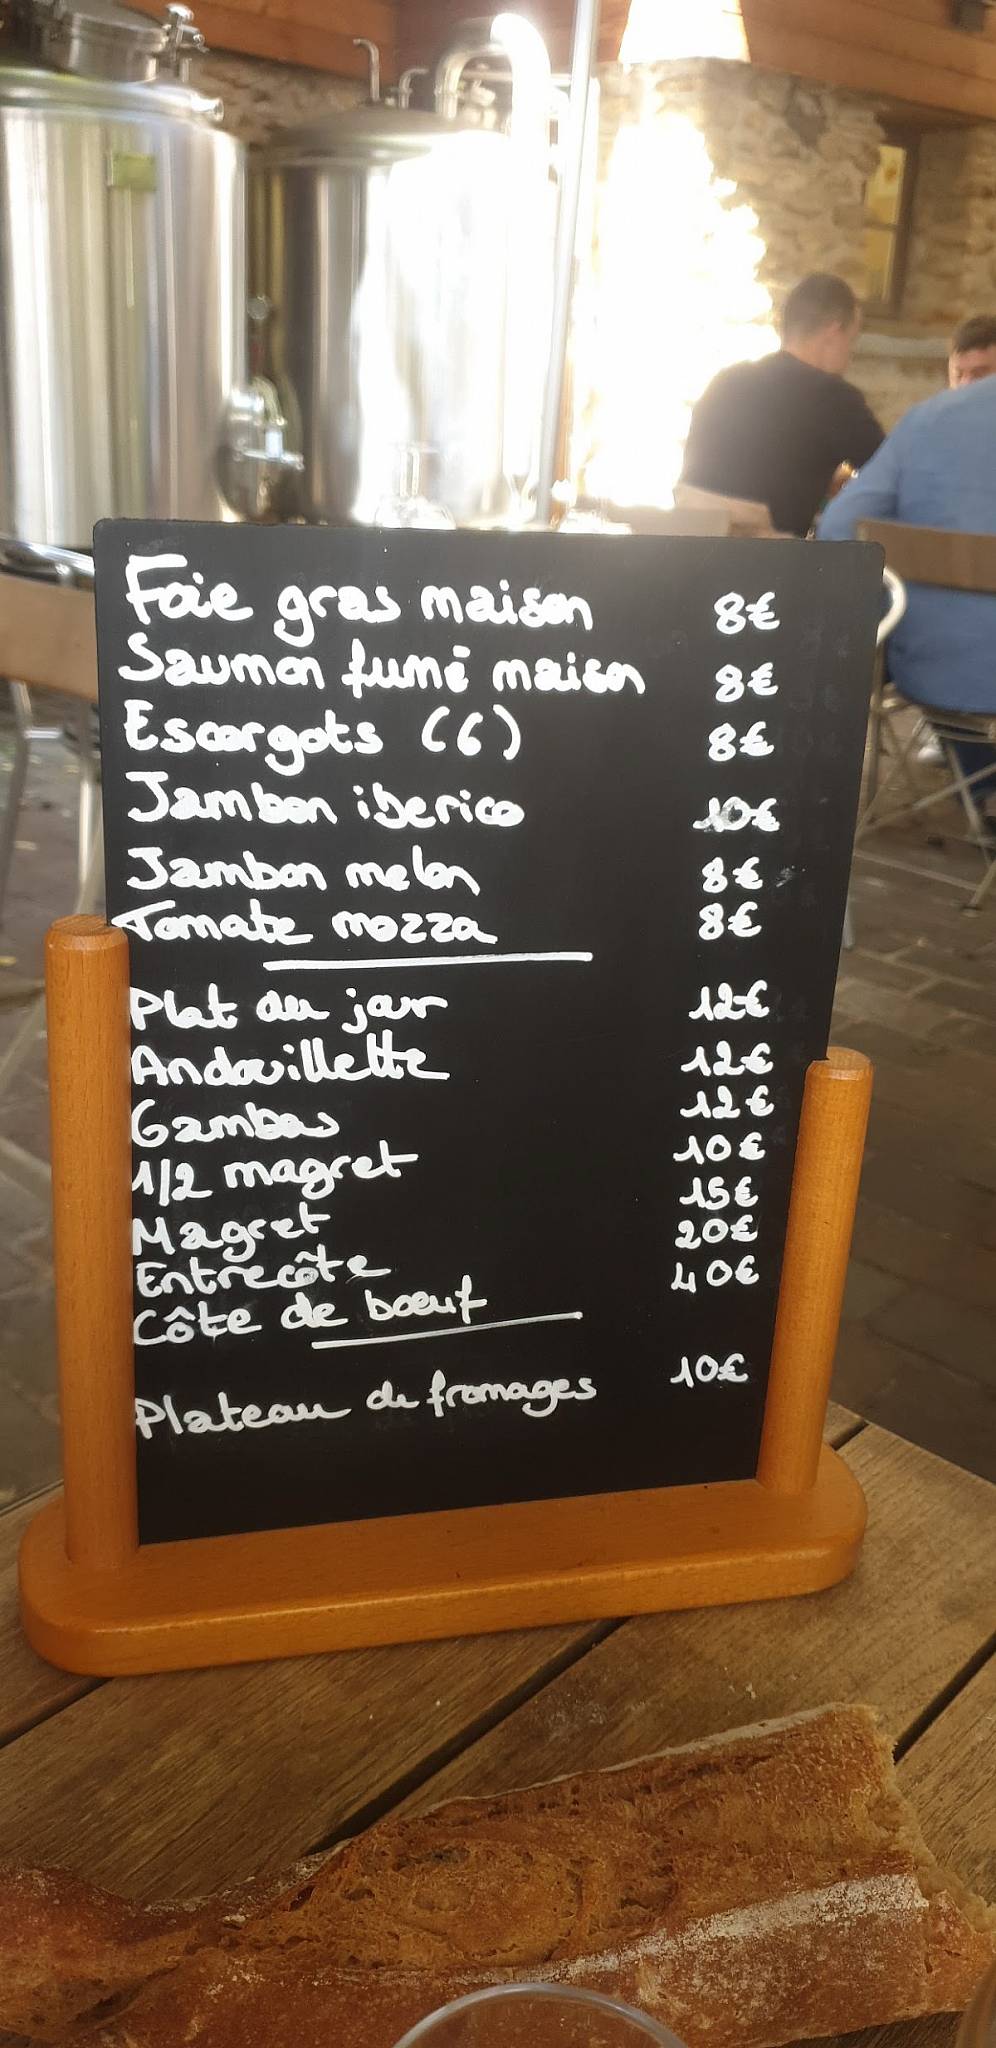 Foie gras maison 8€
Saumon fumé maison 8€
Escargots (6) 8€
Jambon iberico 10€
Jambon melon 8€
Tomate mozza 8€
Plat du jour 12€
Andouillette 12€
Gambas 12€
1/2 magret 10€
Magret 15€
Entrecôte 20€
Côte de boeuf 40€
Plateau de fromages 10€